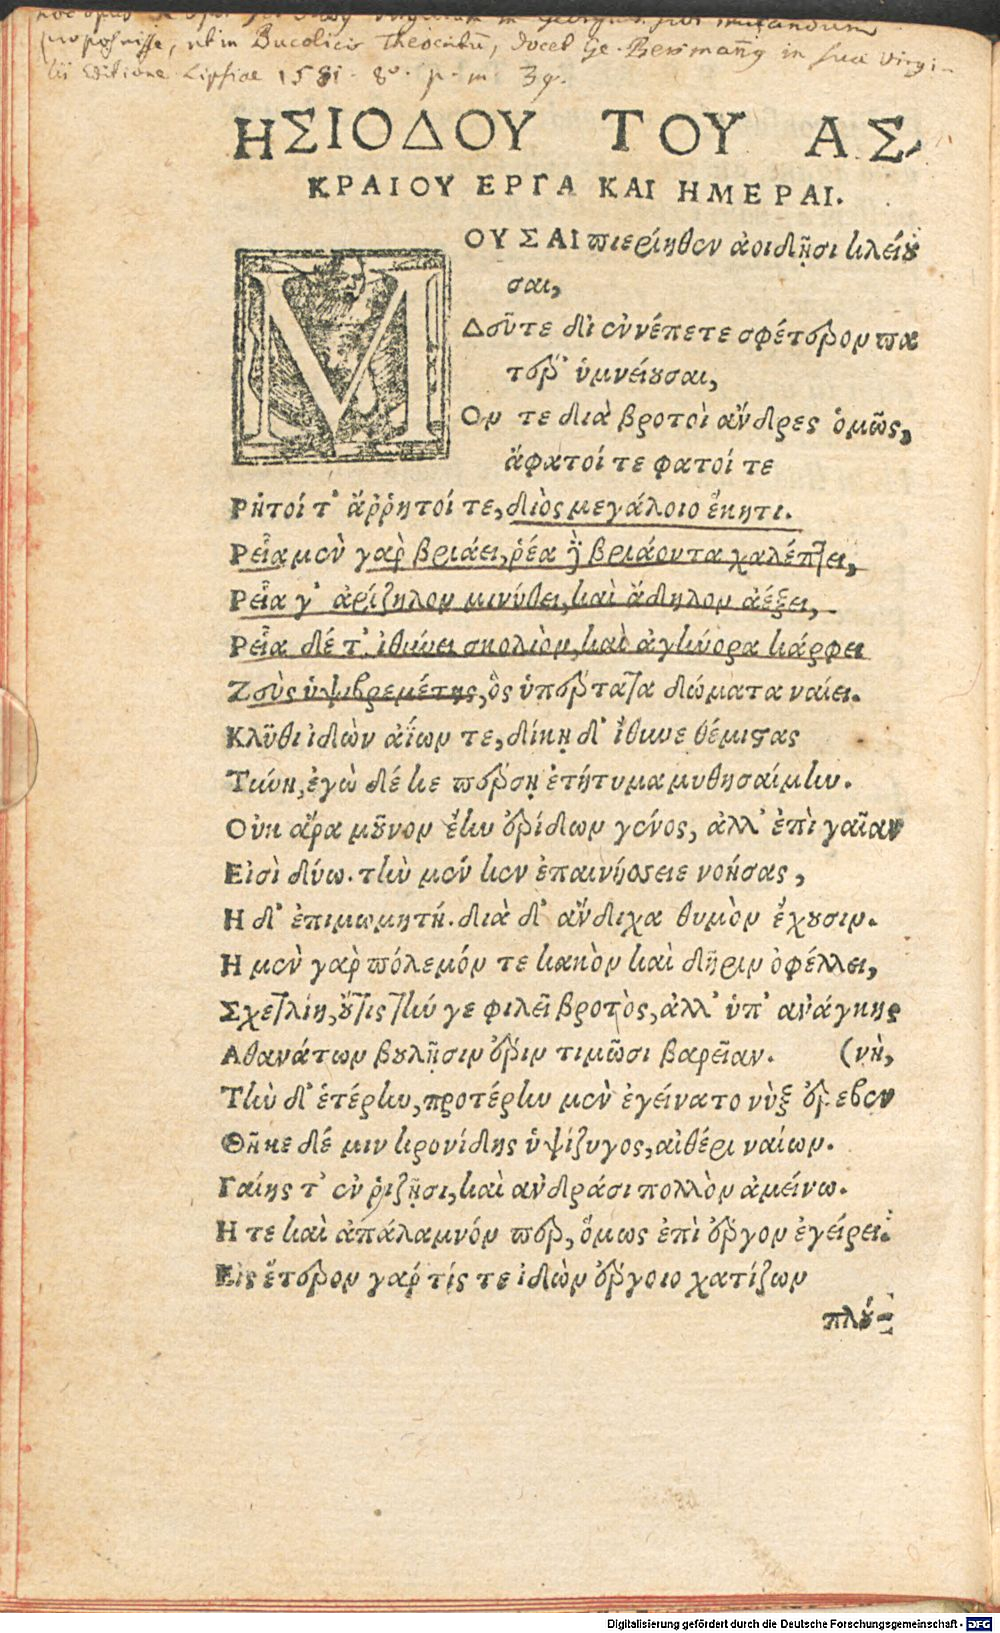 proposuisse, ut in Bucolicis Theocritū, docet Ge. Bersmanng in sua Virgi-
lii Editione Lipsiae 1581. 8°. p. m. 39.
ΗΣΙΟΔΟΥ ΤΟΥ ΑΣ-
ΚΡΑΙΟΥ ΕΡΓΑ ΚΑΙ ΗΜΕΡΑΙ.
ΜΟΥΣΑΙ πιερίηθεν ἀοιδῇσι κλείου
σαι,
Δεῦτε δὶ ἐννέπετε σφέτερον πα
τέρ' ὑμνείουσαι,
Ον τε διὰ βροτοὶ ἄνδρες ὁμῶς,
ἄφατοί τε φατοί τε
Ρητοί τ' ἄῤῥητοί τε, διὸς μεγάλοιο ἕκητι.
Ρεῖα μὲν γὰρ βριάει, ῥέα δὲ βριάοντα χαλέπτει,
Ρεῖα γ' ἀρίζηλον μινύθει, καὶ ἄδηλον ἀέξει,
Ρεῖα δέ τ' ἰθύνει σκολιὸν, καὶ ἀγήνορα κάρφει
Ζεὺς ὑψιβρεμέτης, ὃς ὑπέρτατα δώματα ναίει.
Κλῦθι ἰδὼν ἀΐων τε, δίκῃ δ' ἴθυνε θέμιστας
Τύνη, ἐγὼ δέ κε πέρσῃ ἐτήτυμα μυθησαίμην.
Οὐκ ἄρα μοῦνον ἔην ἐρίδων γένος, ἀλλ' ἐπὶ γαῖαν
Εἰσὶ δύω. τὴν μέν κεν ἐπαινήσειε νοήσας,
Η δ' ἐπιμωμητή. διὰ δ' ἄνδιχα θυμὸν ἔχουσιν.
Η μὲν γὰρ πόλεμόν τε κακὸν καὶ δῆριν ὀφέλλει,
Σχετλίη, οὔτις τήν γε φιλεῖ βροτὸς, ἀλλ' ὑπ' ἀνάγκης
Αθανάτων βουλῇσιν ἔριν τιμῶσι βαρεῖαν. (νὴ,
Τὴν δ' ἑτέρην, προτέρην μὲν ἐγείνατο νὺξ ἐρεβεν
Θῆκε δέ μιν κρονίδης ὑψίζυγος, αἰθέρι ναίων.
Γαίης τ' ἐν ῥιζῇσι, καὶ ἀνδράσι πολλὸν ἀμείνω.
Η τε καὶ ἀπάλαμνόν περ, ὅμως ἐπὶ ἔργον ἐγείρει.
Εἰς ἕτερον γάρ τίς τε ἰδὼν ἔργοιο χατίζων
πλού-
Digitalisierung gefördert durch die Deutsche Forschungsgemeinschaft - DFG